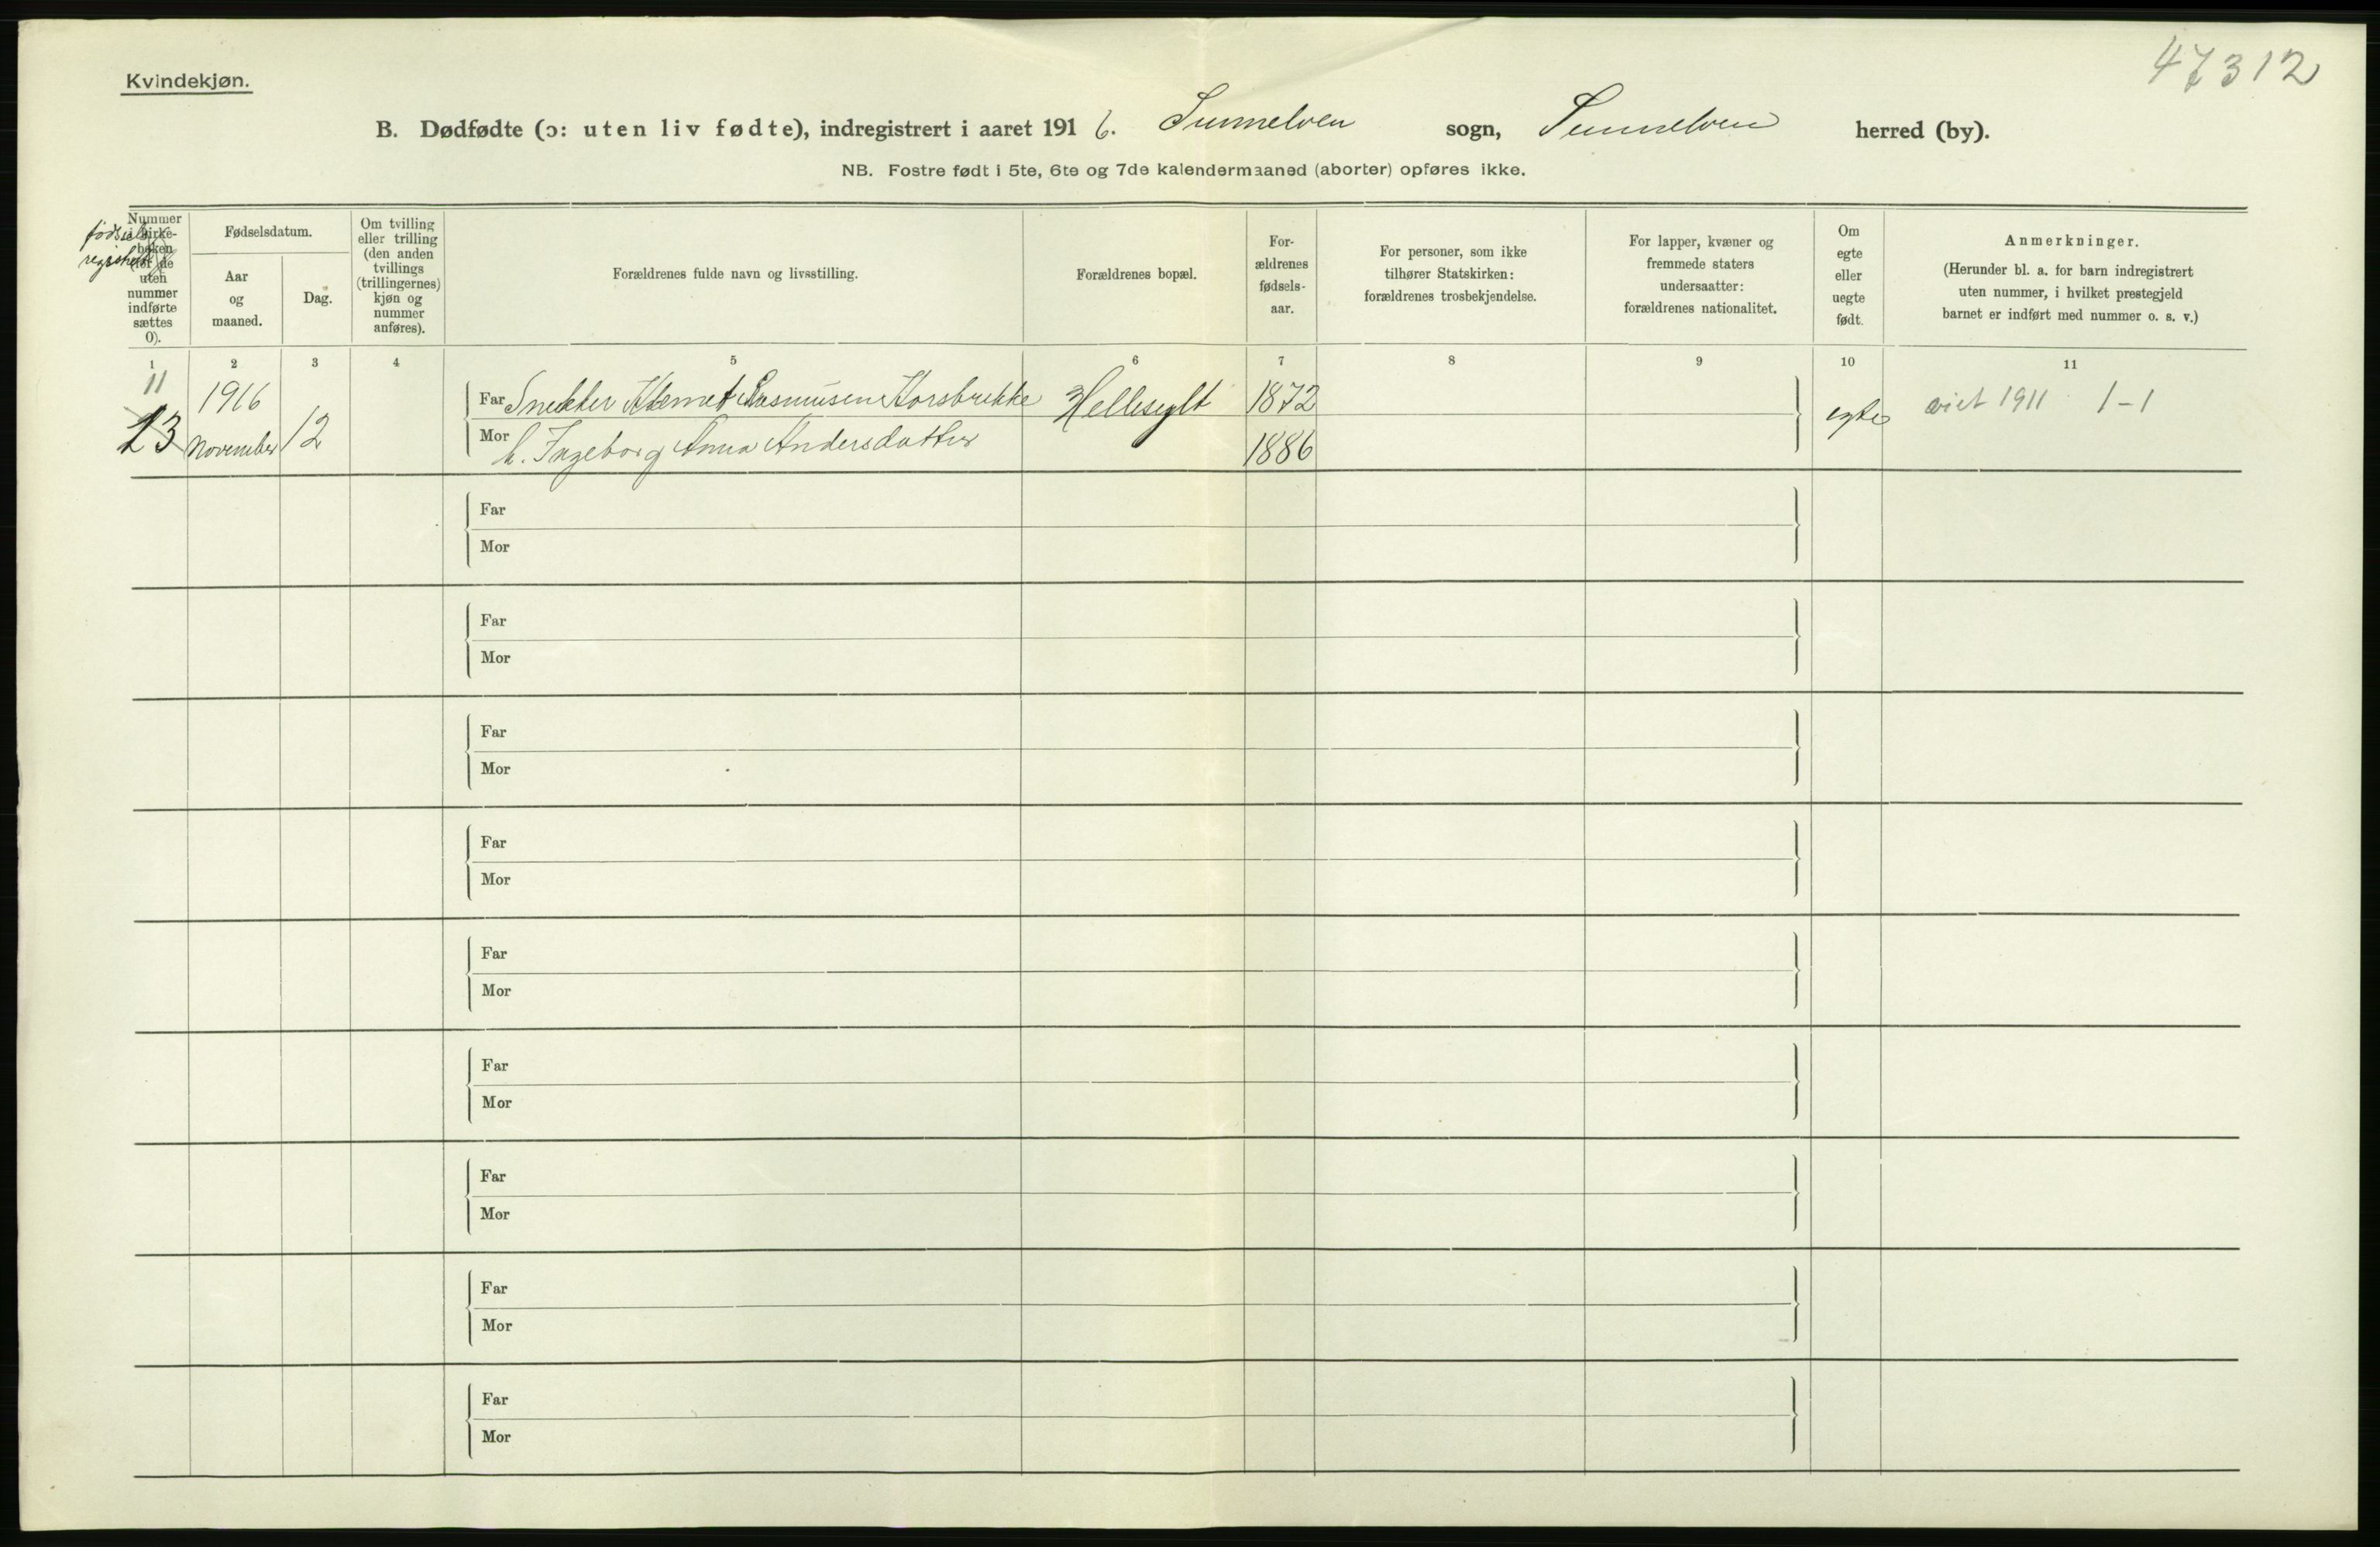 47312
Kvindekjøn.
B. Dødfødte (ɔ: uten liv fødte), indregistrert i aaret 1916. Sunnelven sogn, Sunnelven herred (by).
NB. Fostre født i 5te, 6te og 7de kalendermaaned (aborter) opføres ikke.
Nummer
i kirke-
boken
(for de
uten
nummer
indførte
sættes
0).
fødsels
registret
Fødselsdatum.
Aar
og
maaned.
Dag.
Om tvilling
eller trilling
(den anden
tvillings
(trillingernes)
kjøn og
nummer
anføres).
Forældrenes fulde navn og livsstilling.
Forældrenes bopæl.
For-
ældrenes
fødsels-
aar.
For personer, som ikke
tilhører Statskirken:
forældrenes trosbekjendelse.
For lapper, kvæner og
fremmede staters
undersaatter:
forældrenes nationalitet.
Om
egte
eller
uegte
født.
Anmerkninger.
(Herunder bl. a. for barn indregistrert
uten nummer, i hvilket prestegjeld
barnet er indført med nummer o. s. v.)
1 2 3 4 5 6 7 8 9 10 11
11 1916 Far Snekker Klemet Rasmusen Korsbrekke Hellesylt 1872 egte viet 1911 1-1
23 November 12 Mor h. Ingeborg Anna Andersdatter 1886
Far
Mor
Far
Mor
Far
Mor
Far
Mor
Far
Mor
Far
Mor
Far
Mor
Far
Mor
Far
Mor